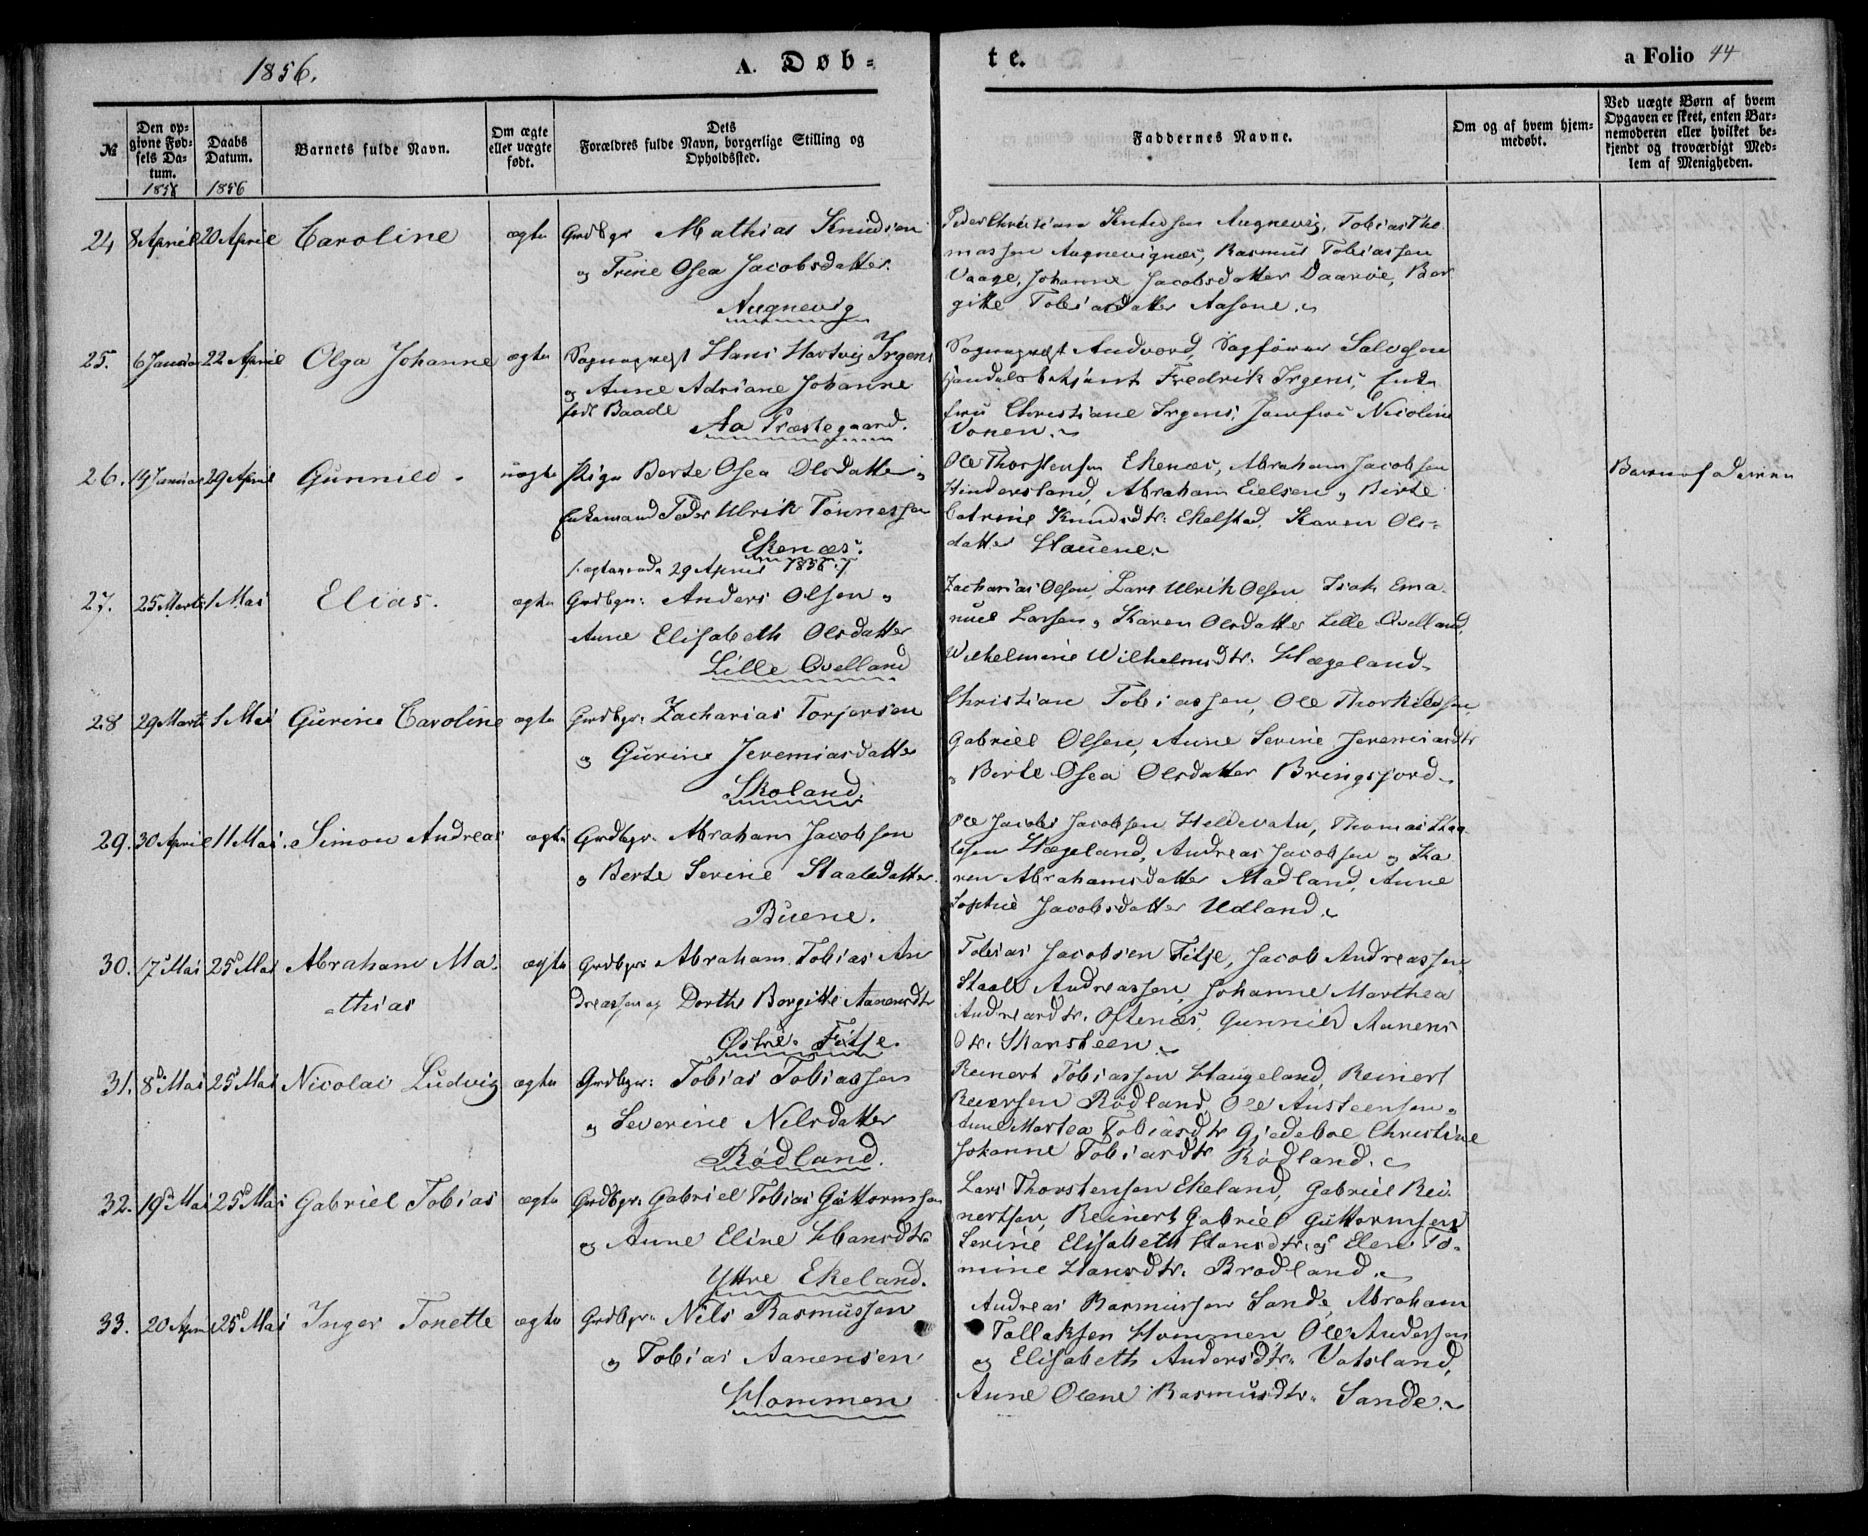 1856.
A. Døb-
te.
a Folio 44
№
Den op-
givne Fød-
sels Da-
tum.
Daabs
Datum.
1856
Barnets fulde Navn.
Om ægte
eller uægte
født.
Dets
Forældres fulde Navn, borgerlige Stilling og
Opholdssted.
Faddernes Navne.
Om og af hvem hjem-
medøbt.
Ved uægte Børn af hvem
Opgaven er skeet, enten Bar-
nemoderen eller hvilket be-
kjendt og troværdigt Med-
lem af Menigheden.
24 8 April 20 April Caroline ægte Grdbgr Mathias Knudsen
og Trine Osea Jacobsdatter.
Augnevig
Peder Christian Knudsen Augnevig, Tobias Tho-
massen Augnevignæs, Rasmus Tobiassen
Vaage, Johanne Jacobsdatter Daarøe, Bor
gitte Tobiasdatter Aasene.
25. 6 Januar 22 April Olga Johanne ægte Sognepræst Hans Hartvig Irgens
og Anne Adriane Johanne
født Baade
Aa Præstegaard.
Sognepræst Andvord, Sagfører Salvesen
Handelsbetjent Fredrik Irgens, Enke
fru Christiane Irgens, Jomfru Nicoline
Vonen.
26. 19 Januar 29 April Gunnild uægte Pige Berte Osea Olsdatter og
Enkemand Peder Ulrik Tønnessen
Ekenæs.
/: ægteviede 29 April 1856 :/
Ole Thorstensen Ekenæs, Abraham Jacobsen
Hindersland, Abraham Eielsen og Birte
Catrine Knudsdtr: Ekelstad, Karen Ols-
datter Hauene.
Barnefaderen
27. 25 Marts 1 Mai Elias. ægte Grdbgr: Anders Olsen og
Anne Elisabeth Olsdatter
Lille Qvelland
Zacharias Olsen, Lars Ulrik Olsen Isak Ema-
nuel Larsen og Karen Olsdatter Lille Qvelland,
Wilhelmine Wilhelmsdtr. Hægeland
28 29 Marts 1 Mai Gurine Caroline ægte Grdbgr: Zacharias Torjersen
og Gurine Jeremiasdatter
Skoland.
Christian Tobiassen, Ole Thorkildsen,
Gabriel Olsen, Anne Serine Jeremiasdtr
og Berte Osea Olsdatter Bringsjord
29. 30 April 11 Mai. Simon Andreas ægte Grdbgr. Abraham Jacobsen
og Berte Serine Staalesdatter.
Buene.
Ole Jacob Jacobsen Heldevatn, Thomas Staa-
lesen Hægeland, Andreas Jacobsen og Ka
ren Abrahamsdatter Madland, Anne
Sophie Jacobsdatter Udland
30. 17 Mai 25 Mai Abraham Ma-
thias
ægte Grdbgr: Abraham Tobias An
dreassen og Dorthe Borgitte Aanensdtr
Østre Fitje.
Tobias Jacobsen Fitje, Jacob Andreassen,
Staale Andreassen, Johanne Marthea
Andreasdtr. Oftenæs, Gunnild Aanens
dtr. Skarsteen.
31. 8 Mai 25 Mai Nicolai Ludvig ægte Grdbgr: Tobias Tobiassen
og Severine Nilsdatter
Rødland.
Reinert Tobiassen Haugeland, Reinert
Reiersen Rødland, Ole Austeensen og
Anne Martea Tobiasdtr Gjedeboe Christine
Johanne Tobiasdtr Rødland.
32. 19 Mai 25 Mai Gabriel Tobias ægte Grdbgr: Gabriel Tobias Guttormsen
og Anne Eline Hansdtr
Yttre Ekeland.
Lars Thorstensen Ekeland, Gabriel Rei-
nertsen, Reinert Gabriel Guttormsen
Serine Elisabeth Hansdtr. og Elen To-
mine Hansdtr. Brødland.
33. 20 April 25 Mai Inger Tonette ægte Grdbgr: Nils Rasmussen
og Tobias Aanensen
Hommen
Andreas Rasmussen Sande, Abraham
Tollaksen Hommen Ole Andersen
og Elisabeth Andersdtr. Vatsland,
Anne Olene Rasmusdtr. Sande.